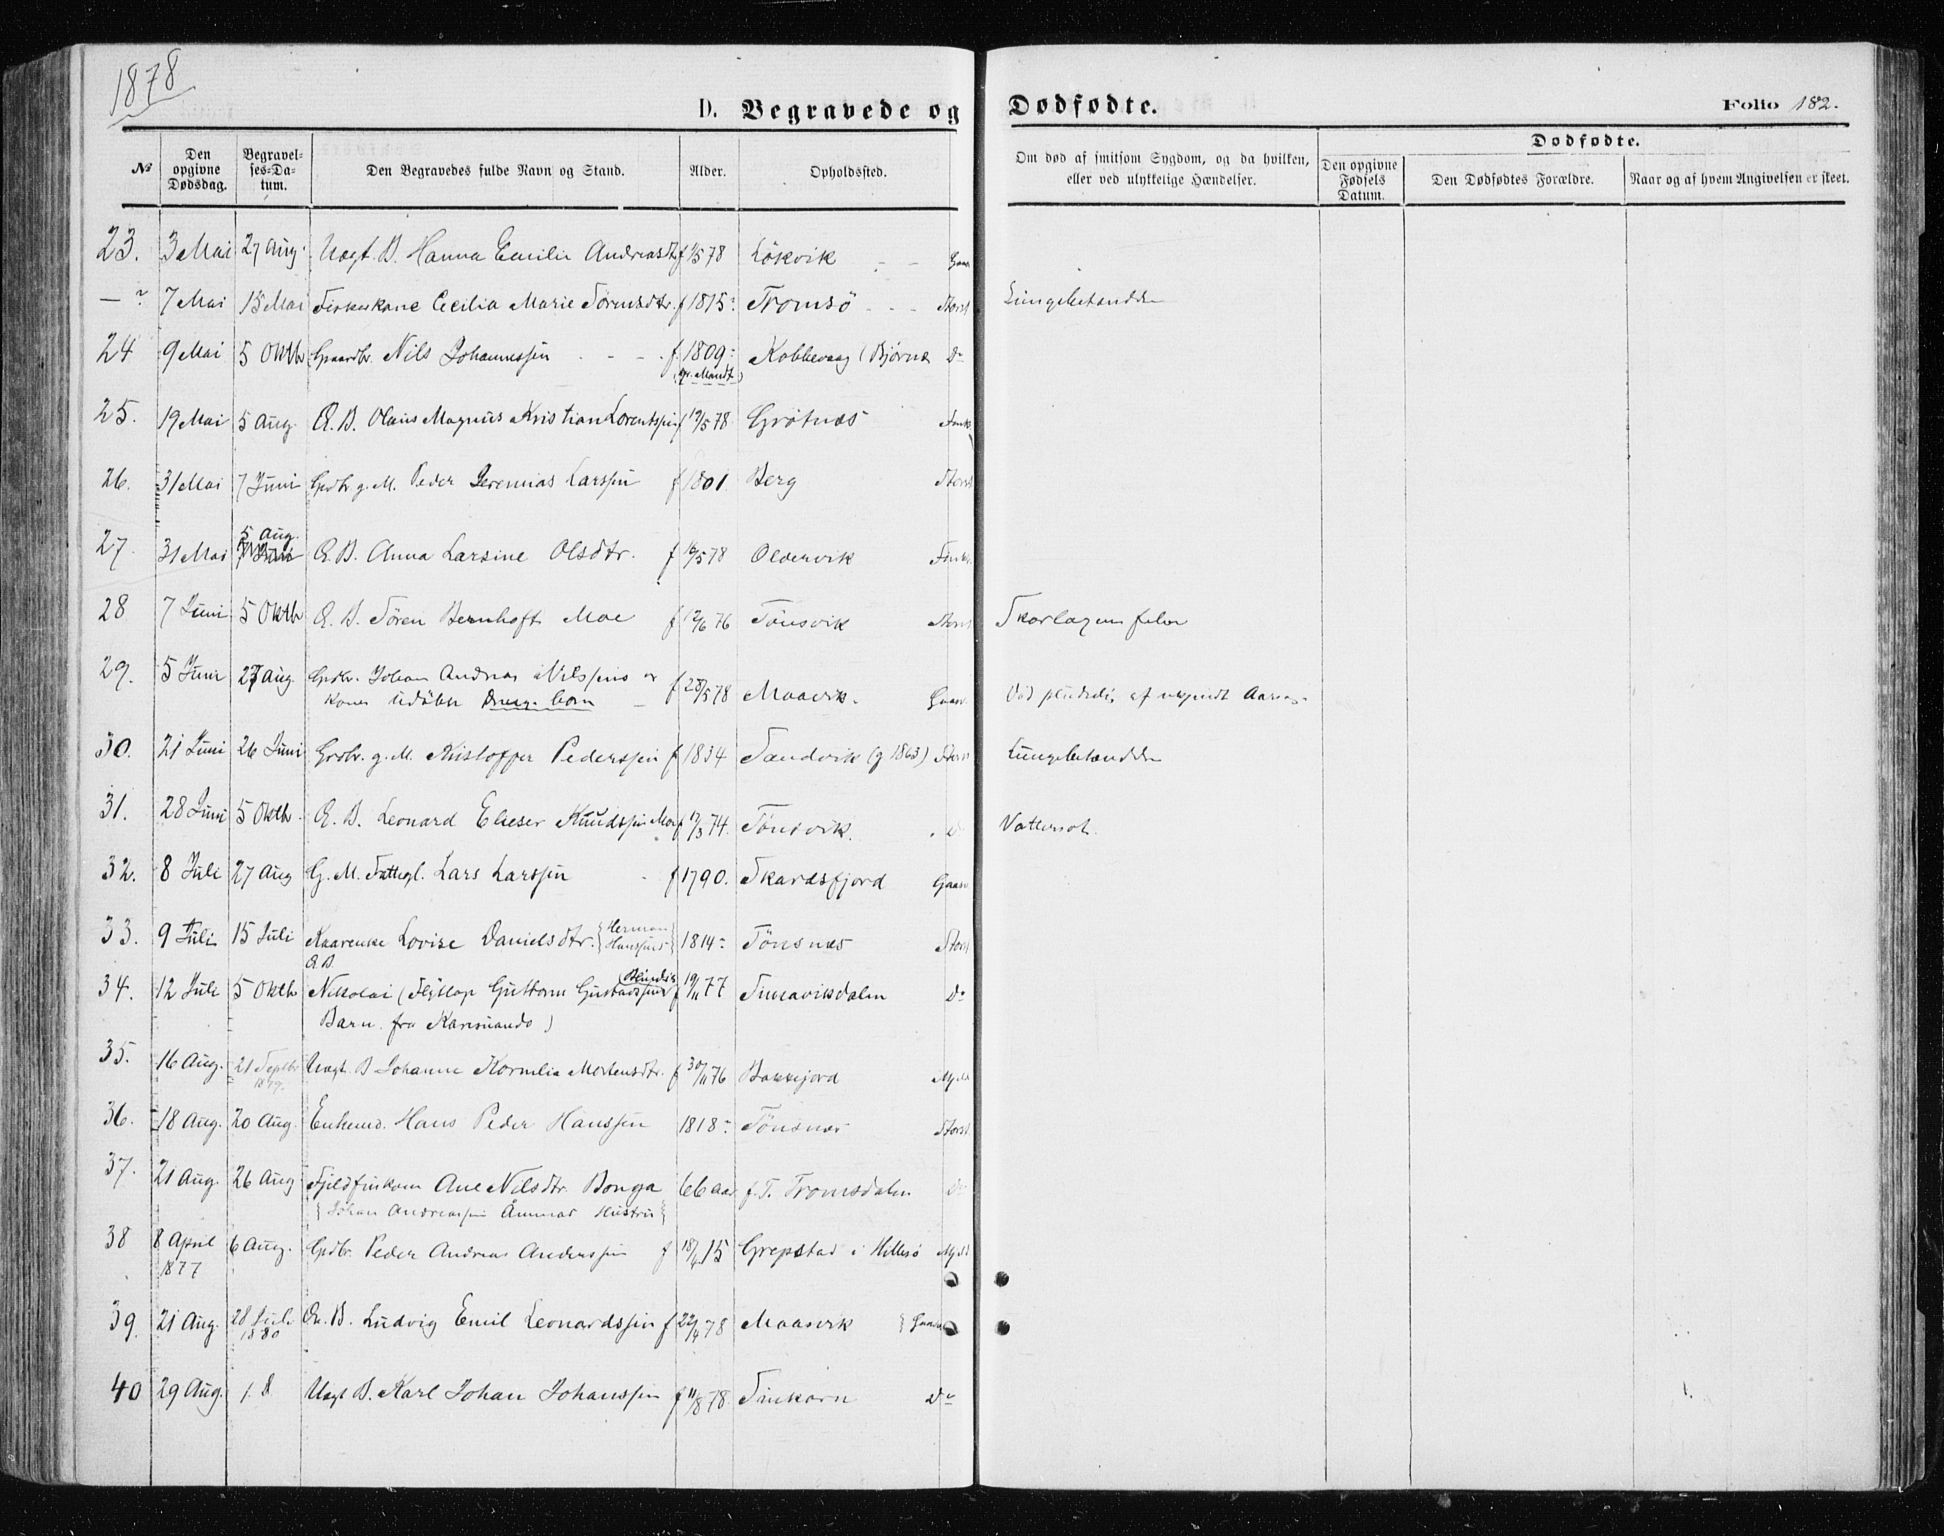 1878
D. Begravede og Dødfødte. Folio 182.
№ Den opgivne Dødsdag. Begravelses-Datum. Den Begravedes fulde Navn og Stand. Alder. Opholdssted. Om død af smitsom Sygdom, og da hvilken, eller ved ulykkelige Hændelser. Dødfødte. Den opgivne Fødsels Datum. Den Dødfødtes Forældre. Naar og af hvem Angivelsen er skeet.
23. 3 Mai 27 Aug. Uægt. B. Hanna Emilie Andreasdtr f 1/5 78 Løkvik
— 7 Mai 15 Mai Cecilia Marie Sørensdtr. f 1815 Tromsø Storst Lungebetændelse
24 9 Mai 5 Oktb Gaardbr. Nils Johannessen f 1809 Kobbevaag (Bjørnø Do
(gr. Mandt)
25. 19 Mai 5 Aug. Æ. B. Olaus Magnus Kristian Lorentssen f 12/5 78 Grøtnæs Finkr
26. 31 Mai 7 Juni Grdbr g. M. Peder Jeremias Larssen f 1801 Berg Storst
5 Aug.
27. 31 Mai 7 Juni Æ. B. Anna Larsine Olsdtr. f 16/5 78 Oldervik Finkr.
28 7 Juni 5 Oktb Æ. B. Søren Bernhoft Moe f 12/6 76 Tønsvik Storst Skarlagensfeber
29. 5 Juni 27 Aug Grdbr. Johan Andreas Nilssens og f 28/5 78 Maasvik. Gaasv. Død pludselig af ukjendt Aarsag.
Kones udøbte Drengebarn
30. 21 Juni 26 Juni Grdbr. g. M. Kristoffer Pederssen f 1834 Sandvik (g 1863) Storst Lungebetændelse
31. 28 Juni 5 Oktb. Æ. B. Leonard Elieser Knudssen Moe f 17/3 74. Tønsvik. Do Vattersot.
32. 8 Juli 27 Aug G. M. Fattigl. Lars Larssen f 1790. Skardsfjord Gaasv
33. 9 Juli 15 Juli Kaarenke Lovise Danielsdtr. {Herman Hanssens} 1814 Tønsnæs Storst
Æ B.
34. 12 Juli 5 Oktb Nikolai (Flytlap Guttorm Gustavssens f 19/11 77 Do
Barn. fra Karesuando)
35. 16 Aug. 21 Septbr 1879. Uægt. B Johanne Kornelia Mortensdtr. f 30/11 76 Bakkejord
36. 18 Aug. 20 Aug. Enkemd. Hans Peder Hanssen 1818 Tønsnæs Storst
37. 21 Aug. 26 Aug Fjeldfinkone Ane Nilsdtr. Bonga 66 Aar f. T. Tromsdalen Do
{Johan Andreassen Ämmas Hustru}
38 8 April 1877 6 Aug. Grdbr. Peder Andreas Anderssen f 18/4 15 Grepstad i Hillesø
39. 21 Aug. 28 Juli 1880 Æ. B. Ludvig Emil Leonardssen f 22/4 78 Maasvik Gaasv
40 29 Aug. 1. D Uægt B. Karl Johan Johanssen f 11/8 78 Finkorn Do